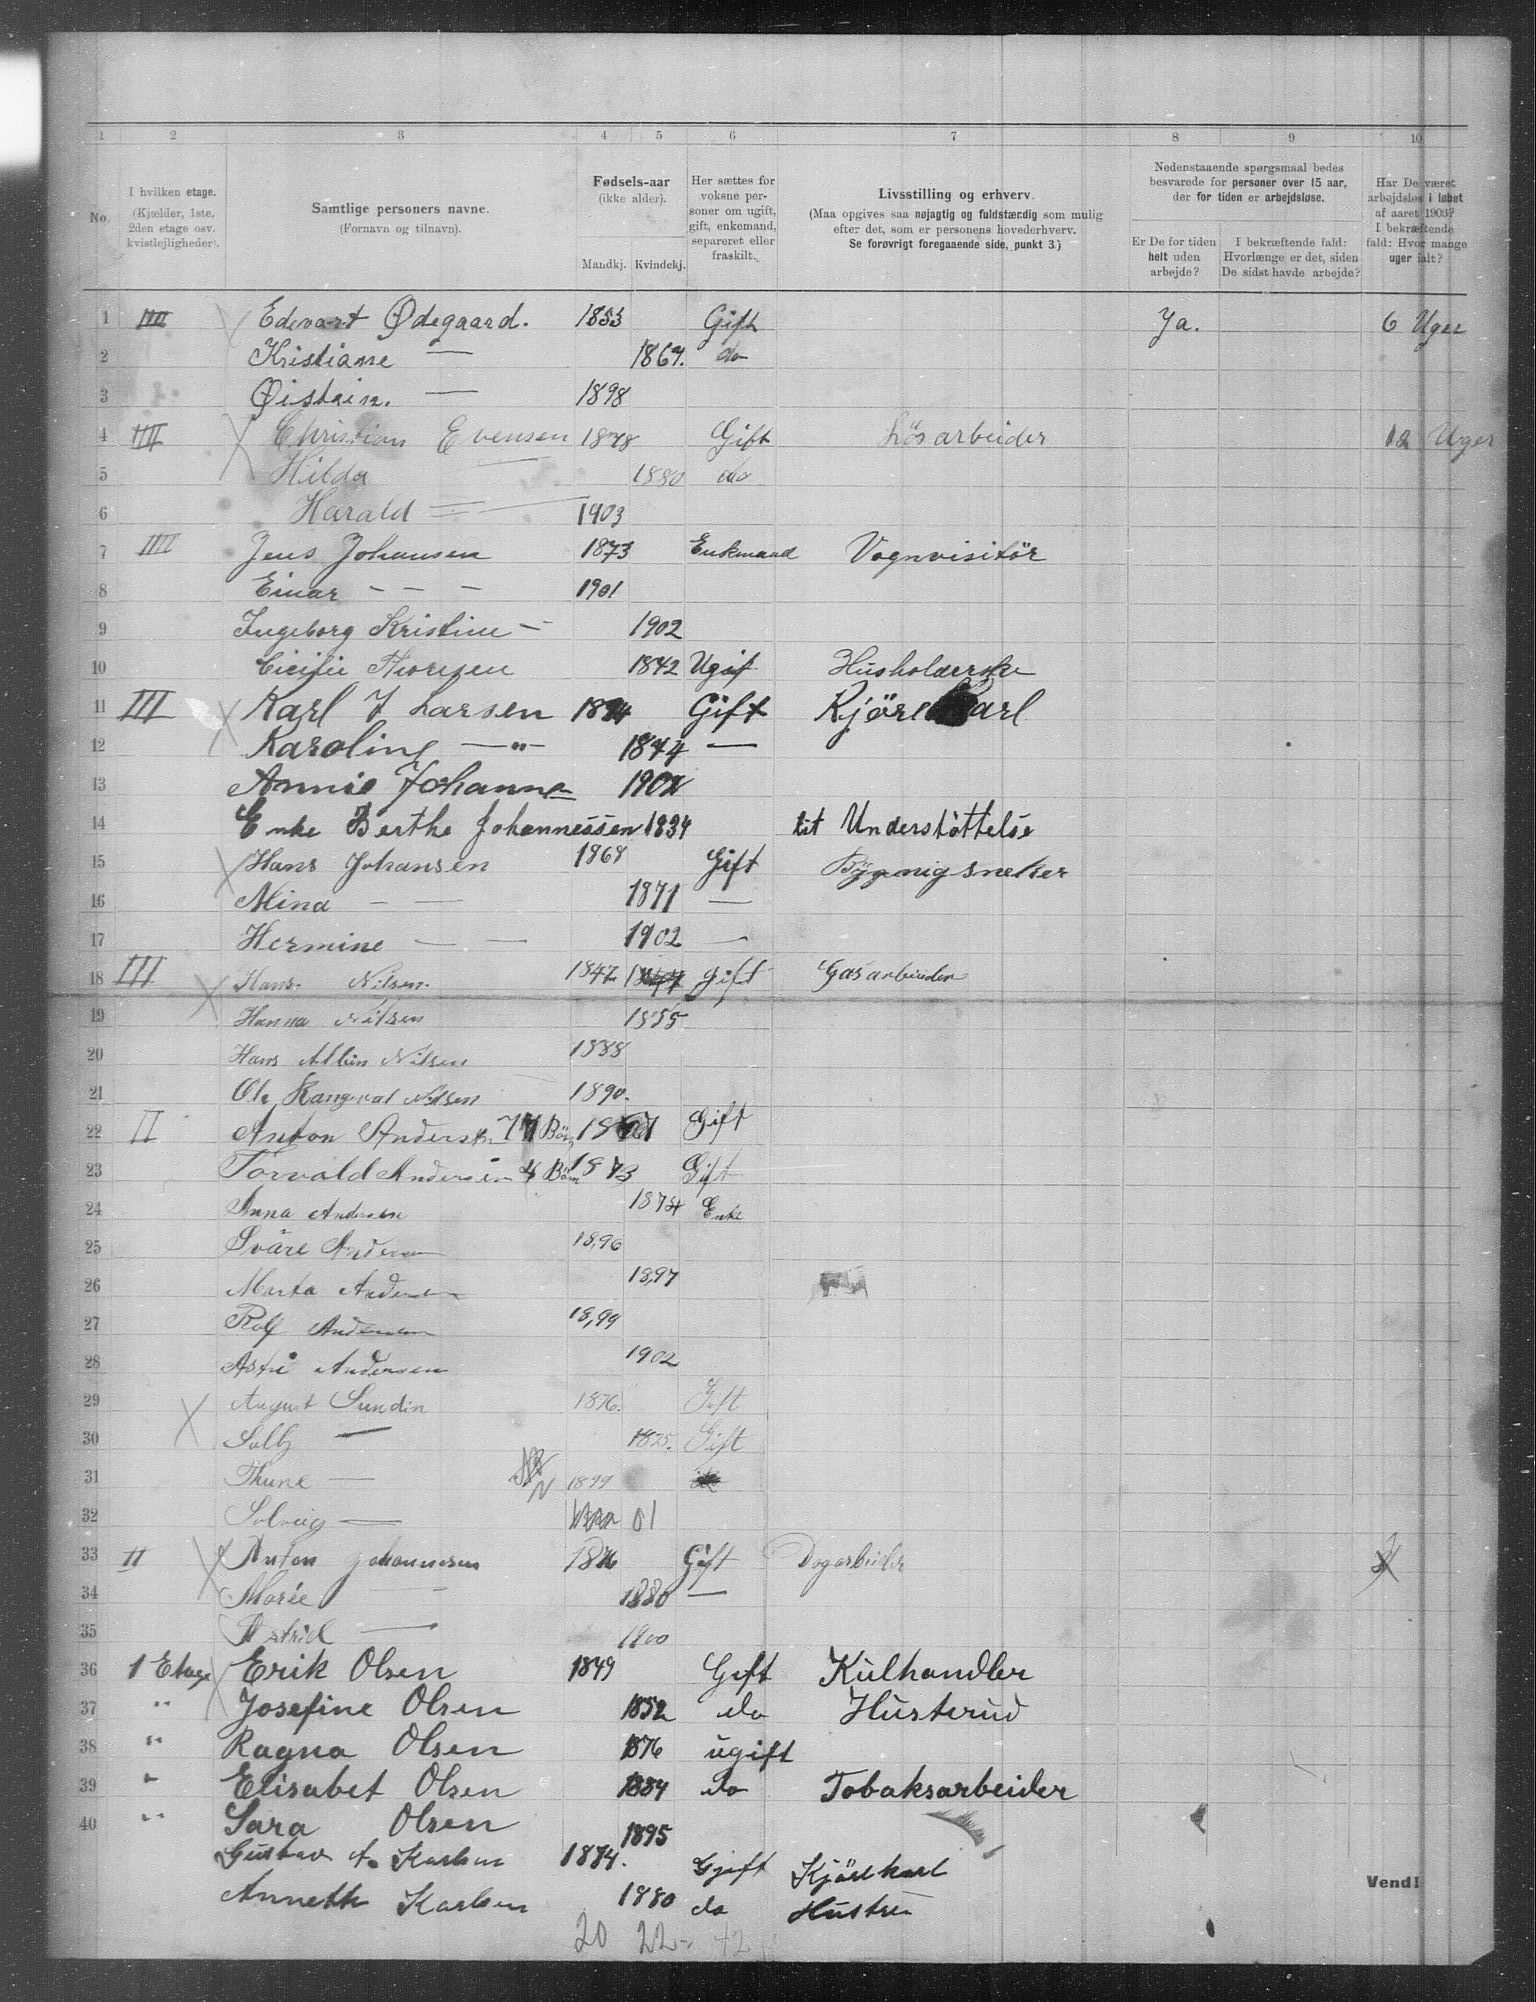 1 2 3 4 5 6 7 8 9 10
No. I hvilken etage. (Kjælder, 1ste, 2den etage osv. kvistlejligheder). Samtlige personers navne. (Fornavn og tilnavn). Fødsels-aar (ikke alder). Mandkj. Kvindekj. Her sættes for voksne personer om ugift, gift, enkemand, separeret eller fraskilt. Livsstilling og erhverv. (Maa opgives saa nøjagtig og fuldstærdig som mulig efter det, som er personens hovederhverv. Se forøvrigt foregaaende side, punkt 3.) Nedenstaaende spørgsmaal bedes besvarede for personer over 15 aar, der for tiden er arbejdsløse. Er De for tiden helt uden arbejde? I bekræftende fald: Hvorlænge er det, siden De sidst havde arbejde? Har De været arbejdsløs i løbet af aaret 1903? I bekræftende fald: Hvor mange uger ialt?
1 IIII Edevart Ødegaard. 1853 Gift Ja. 6 Uger
2 Kristiane — 1867. do
3 Øistein. — 1898
4 IIII Christian Evensen 1878 Gift Løsarbeider 12 Uger
5 Hilda — 1880 do
6 Harald — 1903
7 IIII Jens Johansen 1873 Enkmand Vognvisitör
8 Einar — — — 1901
9 Ingeborg Kristine — 1902
10 Thoresen 1842 Ugif Husholderske
11 III Karl J Larsen Gift Kjörekarl
12 Karoline —"— 1874 —
13 Annie Johanne 1902
14 Enke Berthe Johannessen 1834 tit Understöttelse
15 Hans Johansen 1868 Gift Bygnigsnekker
16 Mina — — 1871 —
17 Hermine — — 1902 —
18 III Hans Nilsen. 1847 gift Gasarbeider
19 Hanna Nilsen 1855
20 Hans Albin Nilsen 1888
21 Ole Rangval Nilsen 1890.
22 II Anton Andersen Börn Gift
23 Torvald Andersen 4 Börn 1873 Gift
24 Anna Andersen 1874 Enke
25 Svare Andersen 18,96
26 Marta Andersen 18,97
27 Rolf Andersen 18,99
28 Astri Andersen 1902
29 August Sundin 1876. Gift
30 — 1875. Gift
31 Thune — 1899
32 Solveig — 01
33 II Anton Johannesen 1876 Gift Dagarbeider
34 Marie — — 1880 —
35 Astrid — 1900
36 1 Etage Erik Olsen 1849 Gift Kulhandler
37 " Josefine Olsen 1852 do Husterud
38 " Ragna Olsen 1876 ugift
39 " Elisabet Olsen 1884 do Tobaksarbeider
40 " Sara Olsen 1895
Gustav A. Karlsen 1874. Gjift Kjörekarl
Anneth Karlsen 1880 do Hustru
Vend!
20 22 42